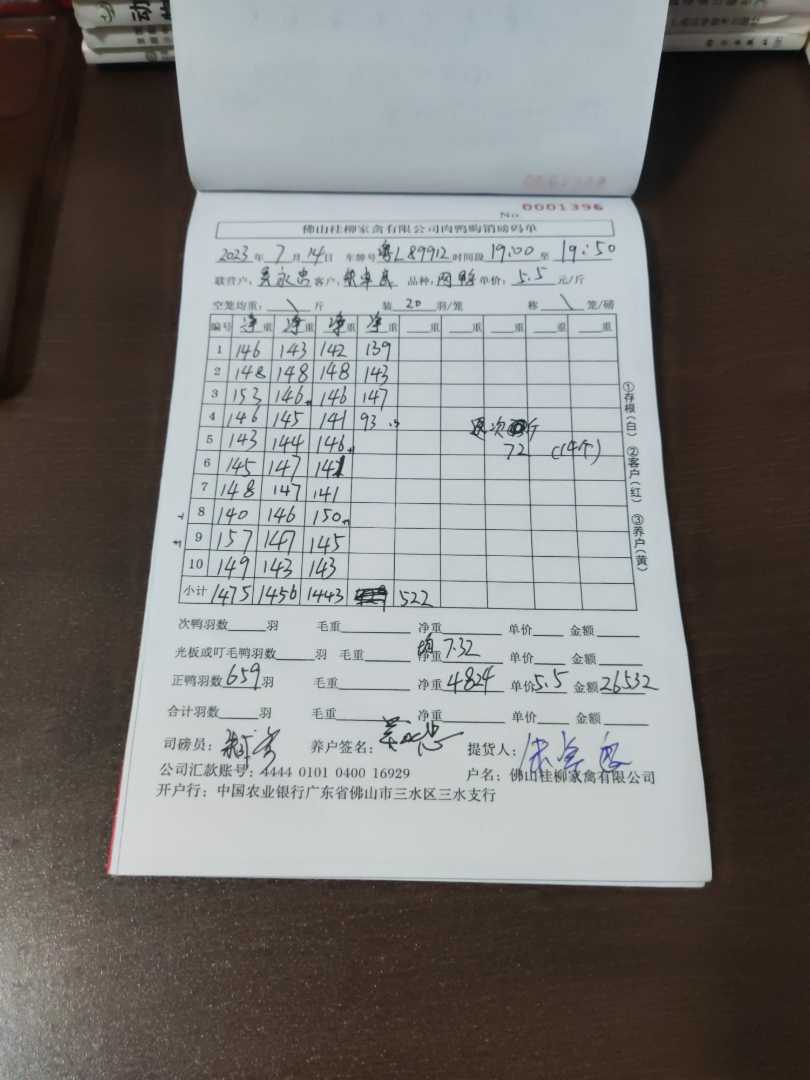 动
No 0001396
佛山桂柳家禽有限公司肉鸭购销磅码单
2023年 7月 14日 车牌号 粤L89912 时间段 19:00 至 19:50
联营户: 客户: 品种: 肉鸭 单价: 5.5 元/斤
空笼均重: \ 斤 装 20 羽/笼 称 \ 笼/磅
编号 净重 净重 净重 净重 重 重 重 重 重
1 146 143 142 139
2 148 148 148 143
3 153 146 146 147
4 146 145 141 93
5 143 144 146 72 (14个)
6 145 147 141
7 148 147 141
8 140 146 150
9 157 147 145
10 149 143 143
小计 1475 1456 1443 522
①存根(白) ②客户(红) ③养户(黄)
次鸭羽数 羽 毛重 净重 单价 金额
光板或叮毛鸭羽数 羽 毛重 净重 均7.32 单价 金额
正鸭羽数 659 羽 毛重 净重 4824 单价 5.5 金额 26532
合计羽数 羽 毛重 净重 单价 金额
司磅员: 养户签名: 提货人:
公司汇款账号: 4444 0101 0400 16929 户名: 佛山桂柳家禽有限公司
开户行: 中国农业银行广东省佛山市三水区三水支行